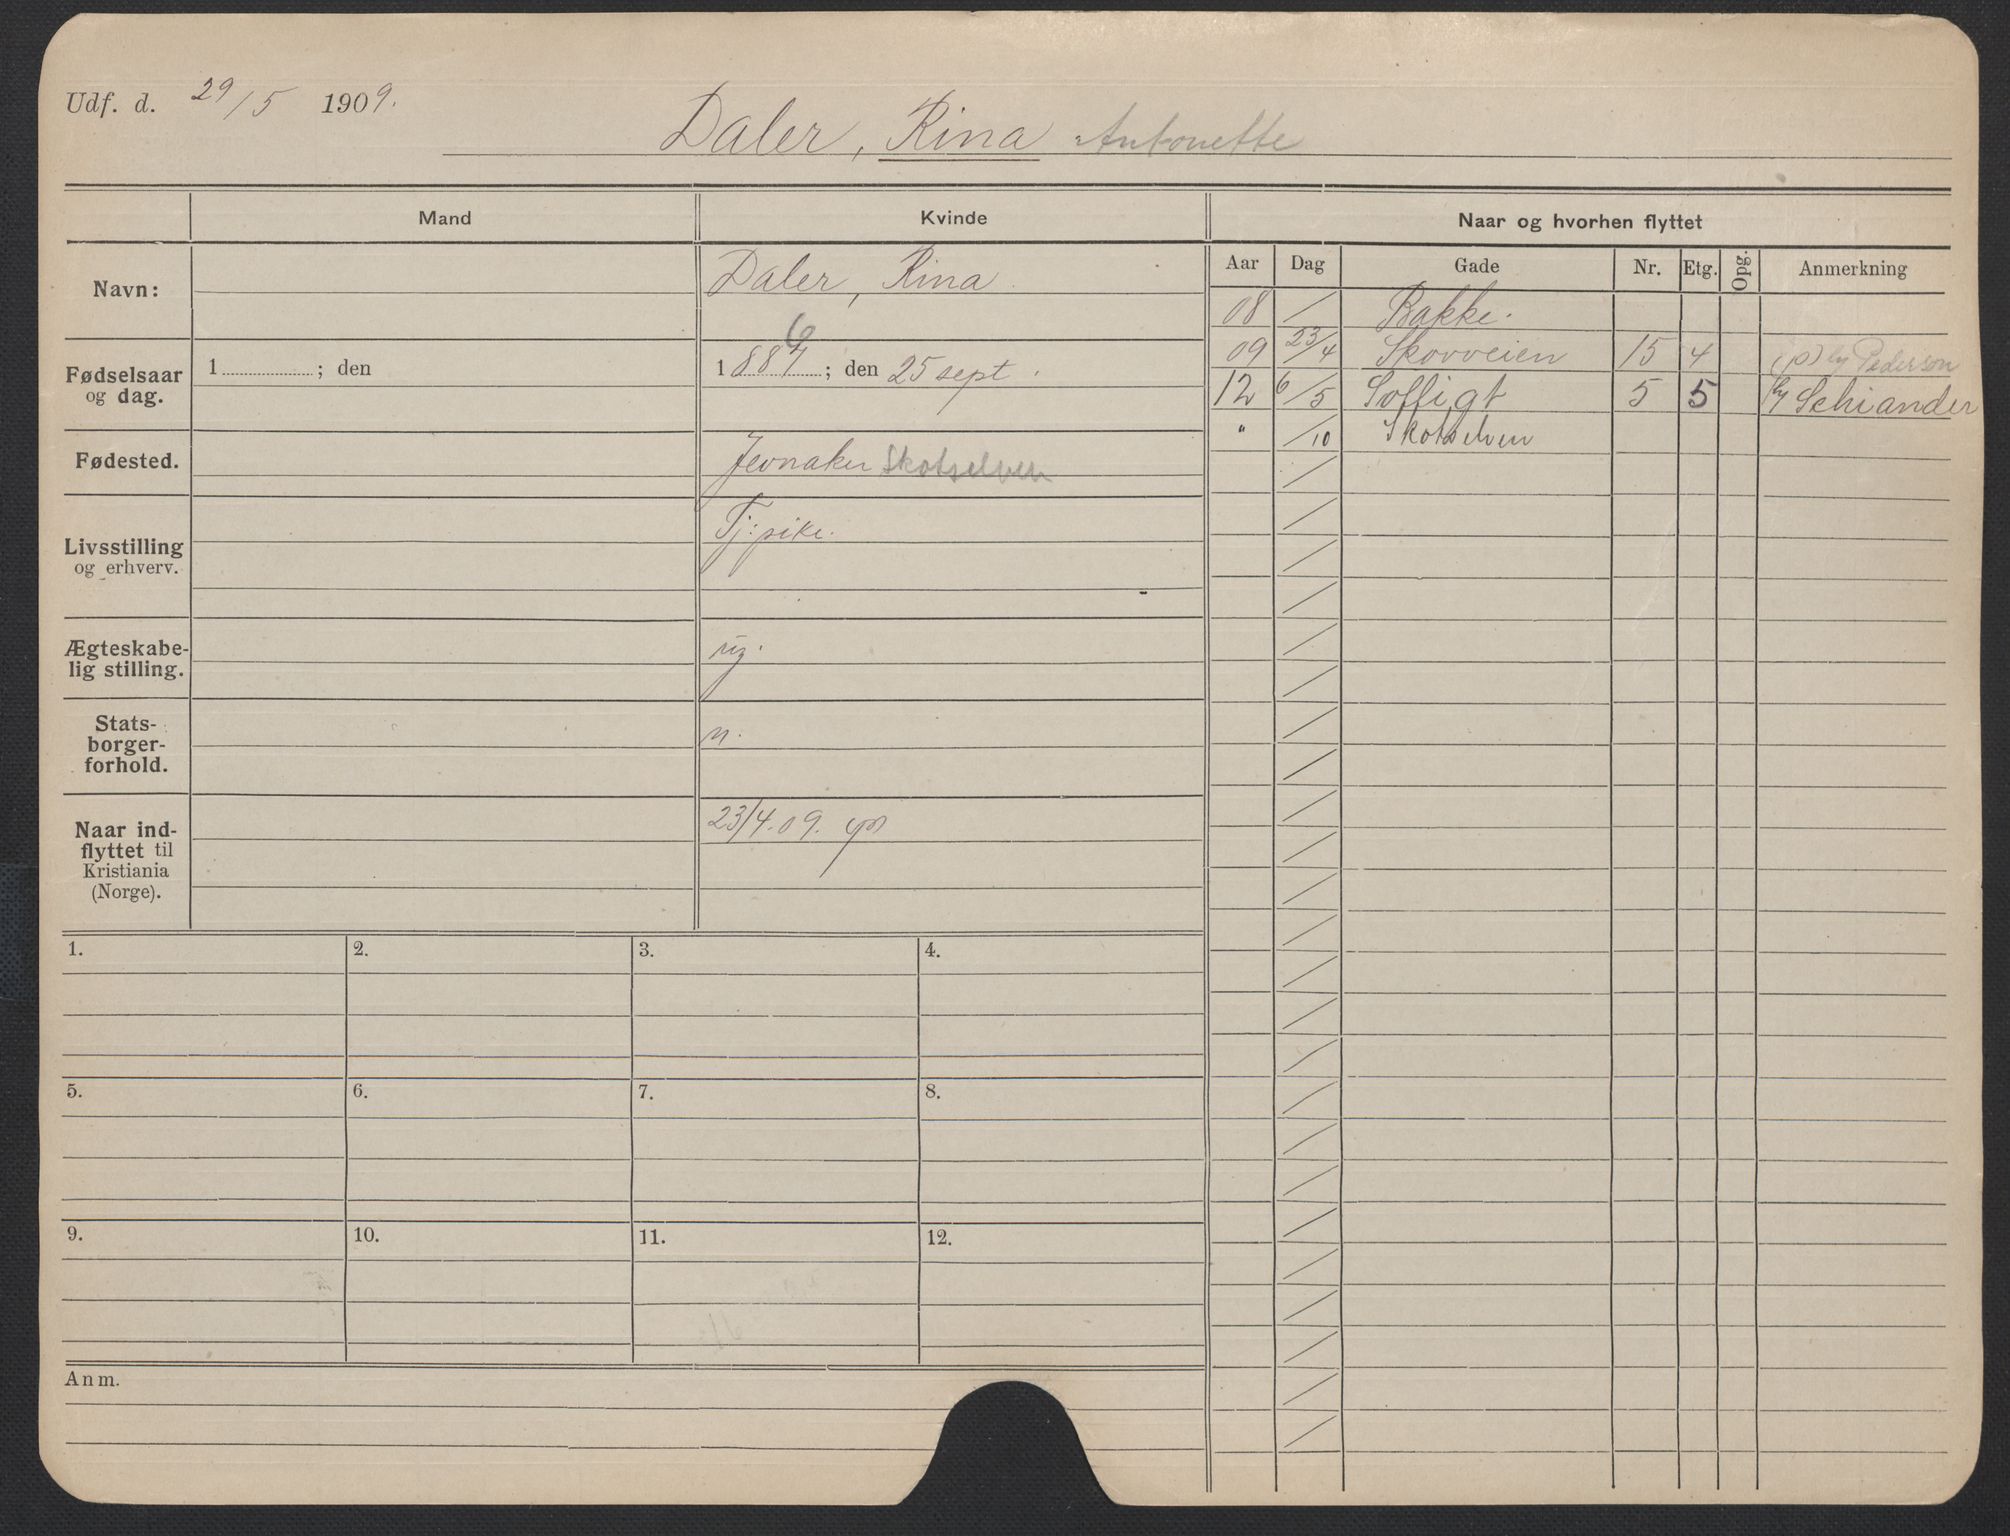 Udf. d. 29/5 1909.
Daler, Rina Antonette
Mand
Kvinde
Naar og hvorhen flyttet
Aar Dag Gade Nr. Etg. Opg. Anmerkning
Navn:
Daler, Rina
Fødselsaar
og dag.
1 ; den
6
1887 ; den 25 sept.
Fødested.
Jevnaker Skotselven
Livsstilling
og erhverv.
Tj: pike.
Ægteskabe-
lig stilling.
ug.
Stats-
borger-
forhold.
n.
Naar ind-
flyttet til
Kristiania
(Norge).
23/4.09.
08 / Bakke.
09 23/4 Skovveien 15 4 (p) hy Pederson
12 6/5 Soffigt 5 5 hy Schiander
" /10 Skotselven
1. 2. 3. 4.
5. 6. 7. 8.
9. 10. 11. 12.
Anm.